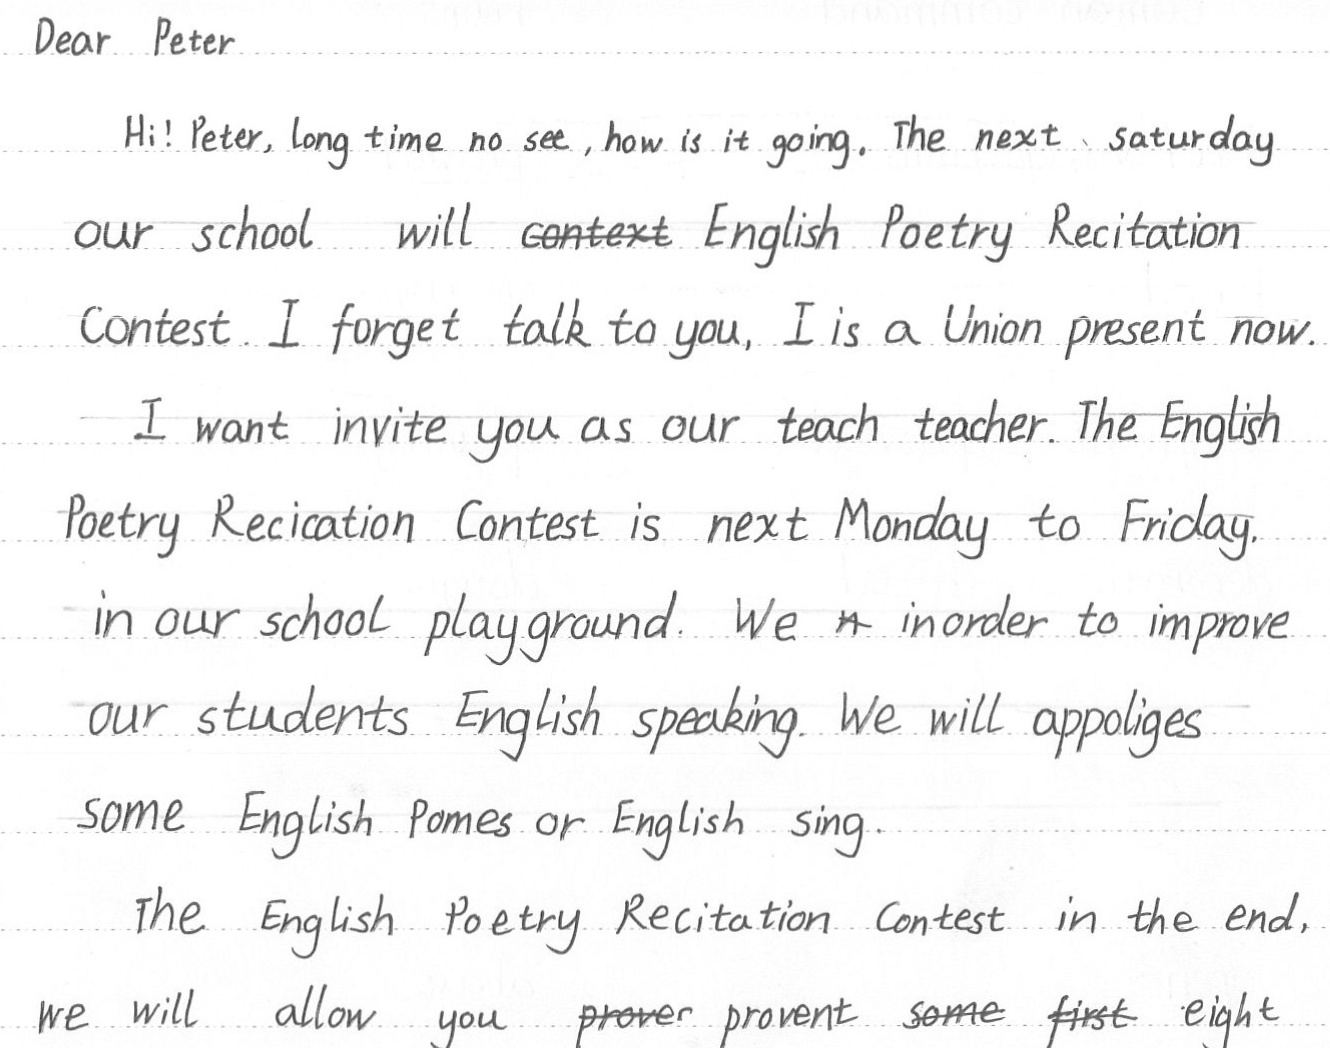 Dear Peter
Hi! Peter, long time no see, how is it going. The next saturday
our school will context English Poetry Recitation
Contest. I forget talk to you, I is a Union present now.
I want invite you as our teach teacher. The English
Poetry Recication Contest is next Monday to Friday.
in our school playground. We inorder to improve
our students English speaking. We will appoliges
some English Pomes or English sing.
The English Poetry Recitation Contest in the end,
we will allow you prover provent some first eight